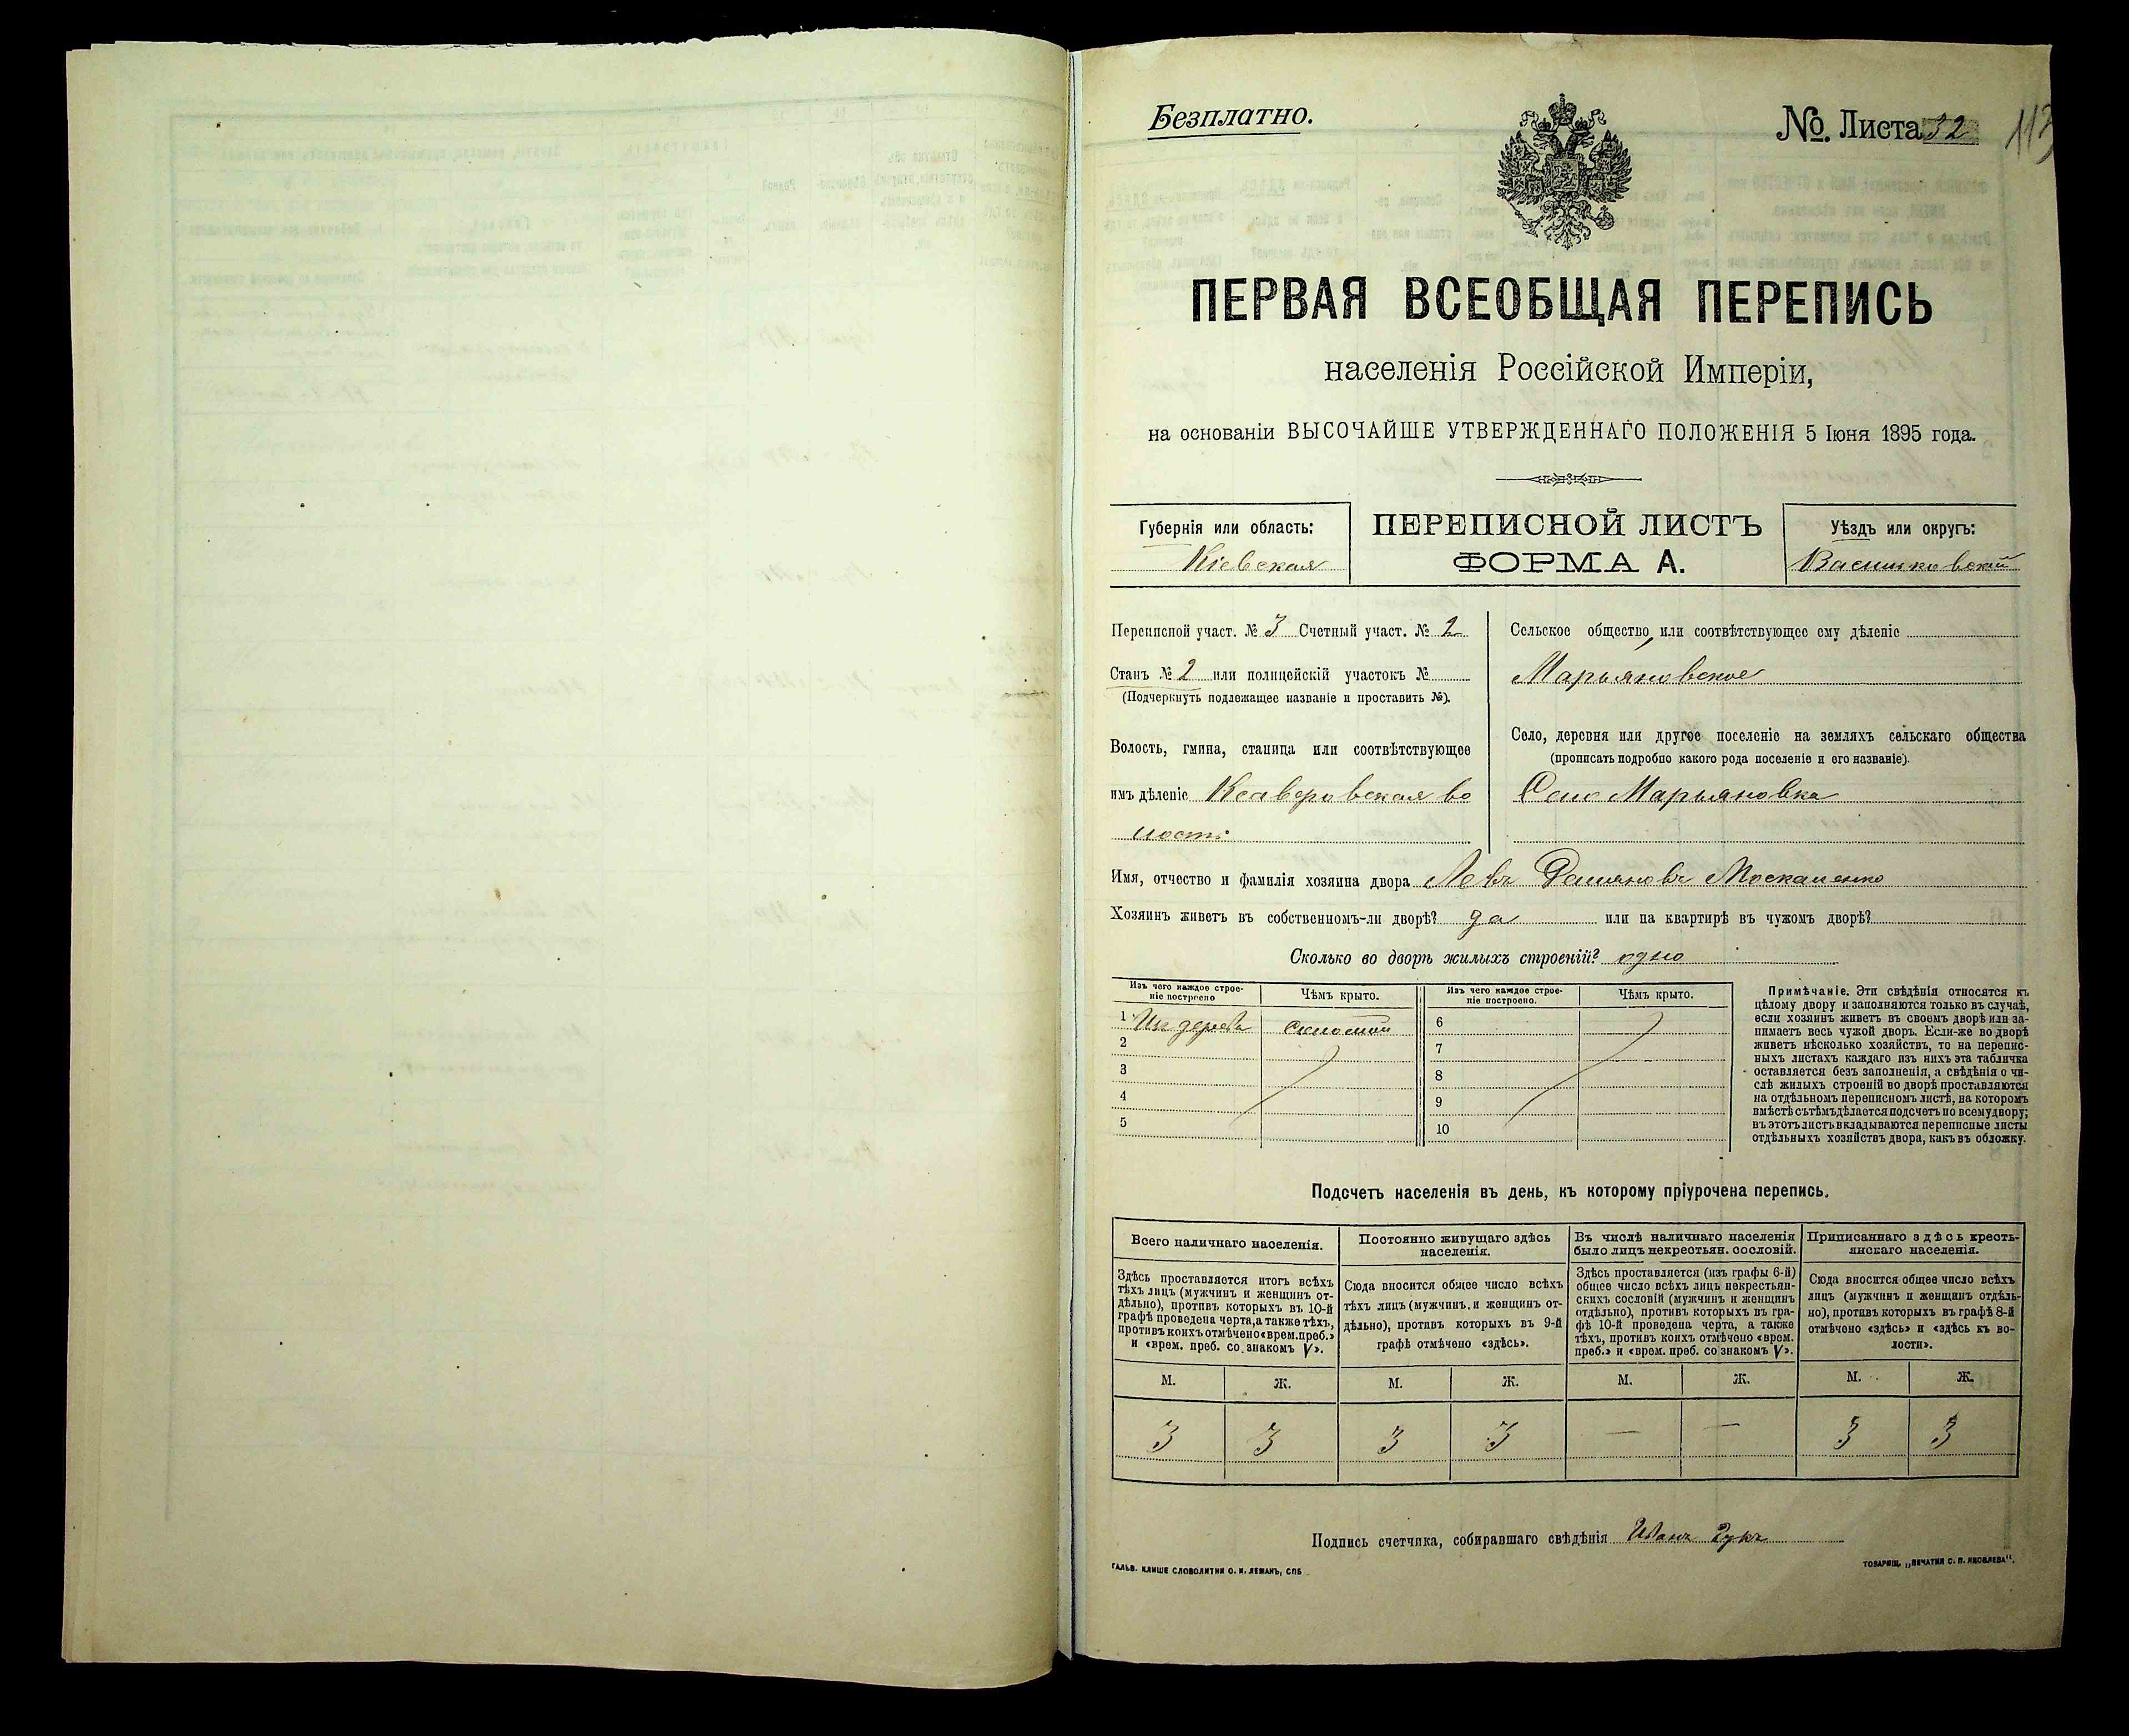 Безплатно.
№ Листа 32
113
ПЕРВАЯ ВСЕОБЩАЯ ПЕРЕПИСЬ
населенія Россійской Имперіи,
на основаніи ВЫСОЧАЙШЕ УТВЕРЖДЕННАГО ПОЛОЖЕНІЯ 5 Іюня 1895 года.
Губернія или область:
Кіевская
ПЕРЕПИСНОЙ ЛИСТЪ
ФОРМА А.
Уѣздъ или округъ:
Васильковскій
Переписной участ. № 3 Счетный участ. № 2
Станъ № 2 или полицейскій участокъ №
(Подчеркнуть подлежащее названіе и проставить №).
Волость, гмина, станица или соотвѣтствующее
имъ дѣленіе Ксаверовская во
лость
Сельское общество, или соотвѣтствующее ему дѣленіе
Марьяновское
Село, деревня или другое поселеніе на земляхъ сельскаго общества
(прописать подробно какого рода поселеніе и его названіе).
Село Марьяновка
Имя, отчество и фамилія хозяина двора Левъ Демяновъ Москаленко
Хозяинъ живетъ въ собственномъ-ли дворѣ? да или на квартирѣ въ чужомъ дворѣ?
Сколько во дворѣ жилыхъ строеній? одно
Изъ чего каждое строе-
ніе построено
Чѣмъ крыто.
Изъ чего каждое строе-
ніе построено.
Чѣмъ крыто.
1 Изъ дерева соломой
2
3
4
5
6
7
8
9
10
Примѣчаніе. Эти свѣдѣнія относятся къ
цѣлому двору и заполняются только въ случаѣ,
если хозяинъ живетъ въ своемъ дворѣ или за-
нимаетъ весь чужой дворъ. Если-же во дворѣ
живетъ нѣсколько хозяйствъ, то на перепис-
ныхъ листахъ каждаго изъ нихъ эта табличка
оставляется безъ заполненія, а свѣдѣнія о чи-
слѣ жилыхъ строеній во дворѣ проставляются
на отдѣльномъ переписномъ листѣ, на которомъ
вмѣстѣ съ тѣмъ дѣлается подсчетъ по всему двору;
въ этотъ листъ вкладываются переписные листы
отдѣльныхъ хозяйствъ двора, какъ въ обложку.
Подсчетъ населенія въ день, къ которому пріурочена перепись.
Всего наличнаго населенія.
Здѣсь проставляется итогъ всѣхъ
тѣхъ лицъ (мужчинъ и женщинъ от-
дѣльно), противъ которыхъ въ 10-й
графѣ проведена черта, а также тѣхъ,
противъ коихъ отмѣчено «врем. преб.»
и «врем. преб. со знакомъ V».
Постоянно живущаго здѣсь
населенія.
Сюда вносится общее число всѣхъ
тѣхъ лицъ (мужчинъ. и женщинъ от-
дѣльно), противъ которыхъ въ 9-й
графѣ отмѣчено «здѣсь».
Въ числѣ наличнаго населенія
было лицъ некрестьян. сословій.
Здѣсь проставляется (изъ графы 6-й)
общее число всѣхъ лицъ некрестьян-
скихъ сословій (мужчинъ и женщинъ
отдѣльно), противъ которыхъ въ гра-
фѣ 10-й проведена черта, а также
тѣхъ, противъ коихъ отмѣчено «врем.
преб.» и «врем. преб. со знакомъ V».
Приписаннаго здѣсь кресть-
янскаго населенія.
Сюда вносится общее число всѣхъ
лицъ (мужчинъ и женщинъ отдѣль-
но), противъ которыхъ въ графѣ 8-й
отмѣчено «здѣсь» и «здѣсь къ во-
лости».
М. Ж. М. Ж. М. Ж. М. Ж.
3 3 3 3 — — 3 3
Подпись счетчика, собиравшаго свѣдѣнія Иванъ
ГАЛЬВ. КЛИШЕ СЛОВОЛИТНИ О. И. ЛЕМАНЪ, СПБ
ТОВАРИЩ. „ПЕЧАТНЯ С. П. ЯКОВЛЕВА".